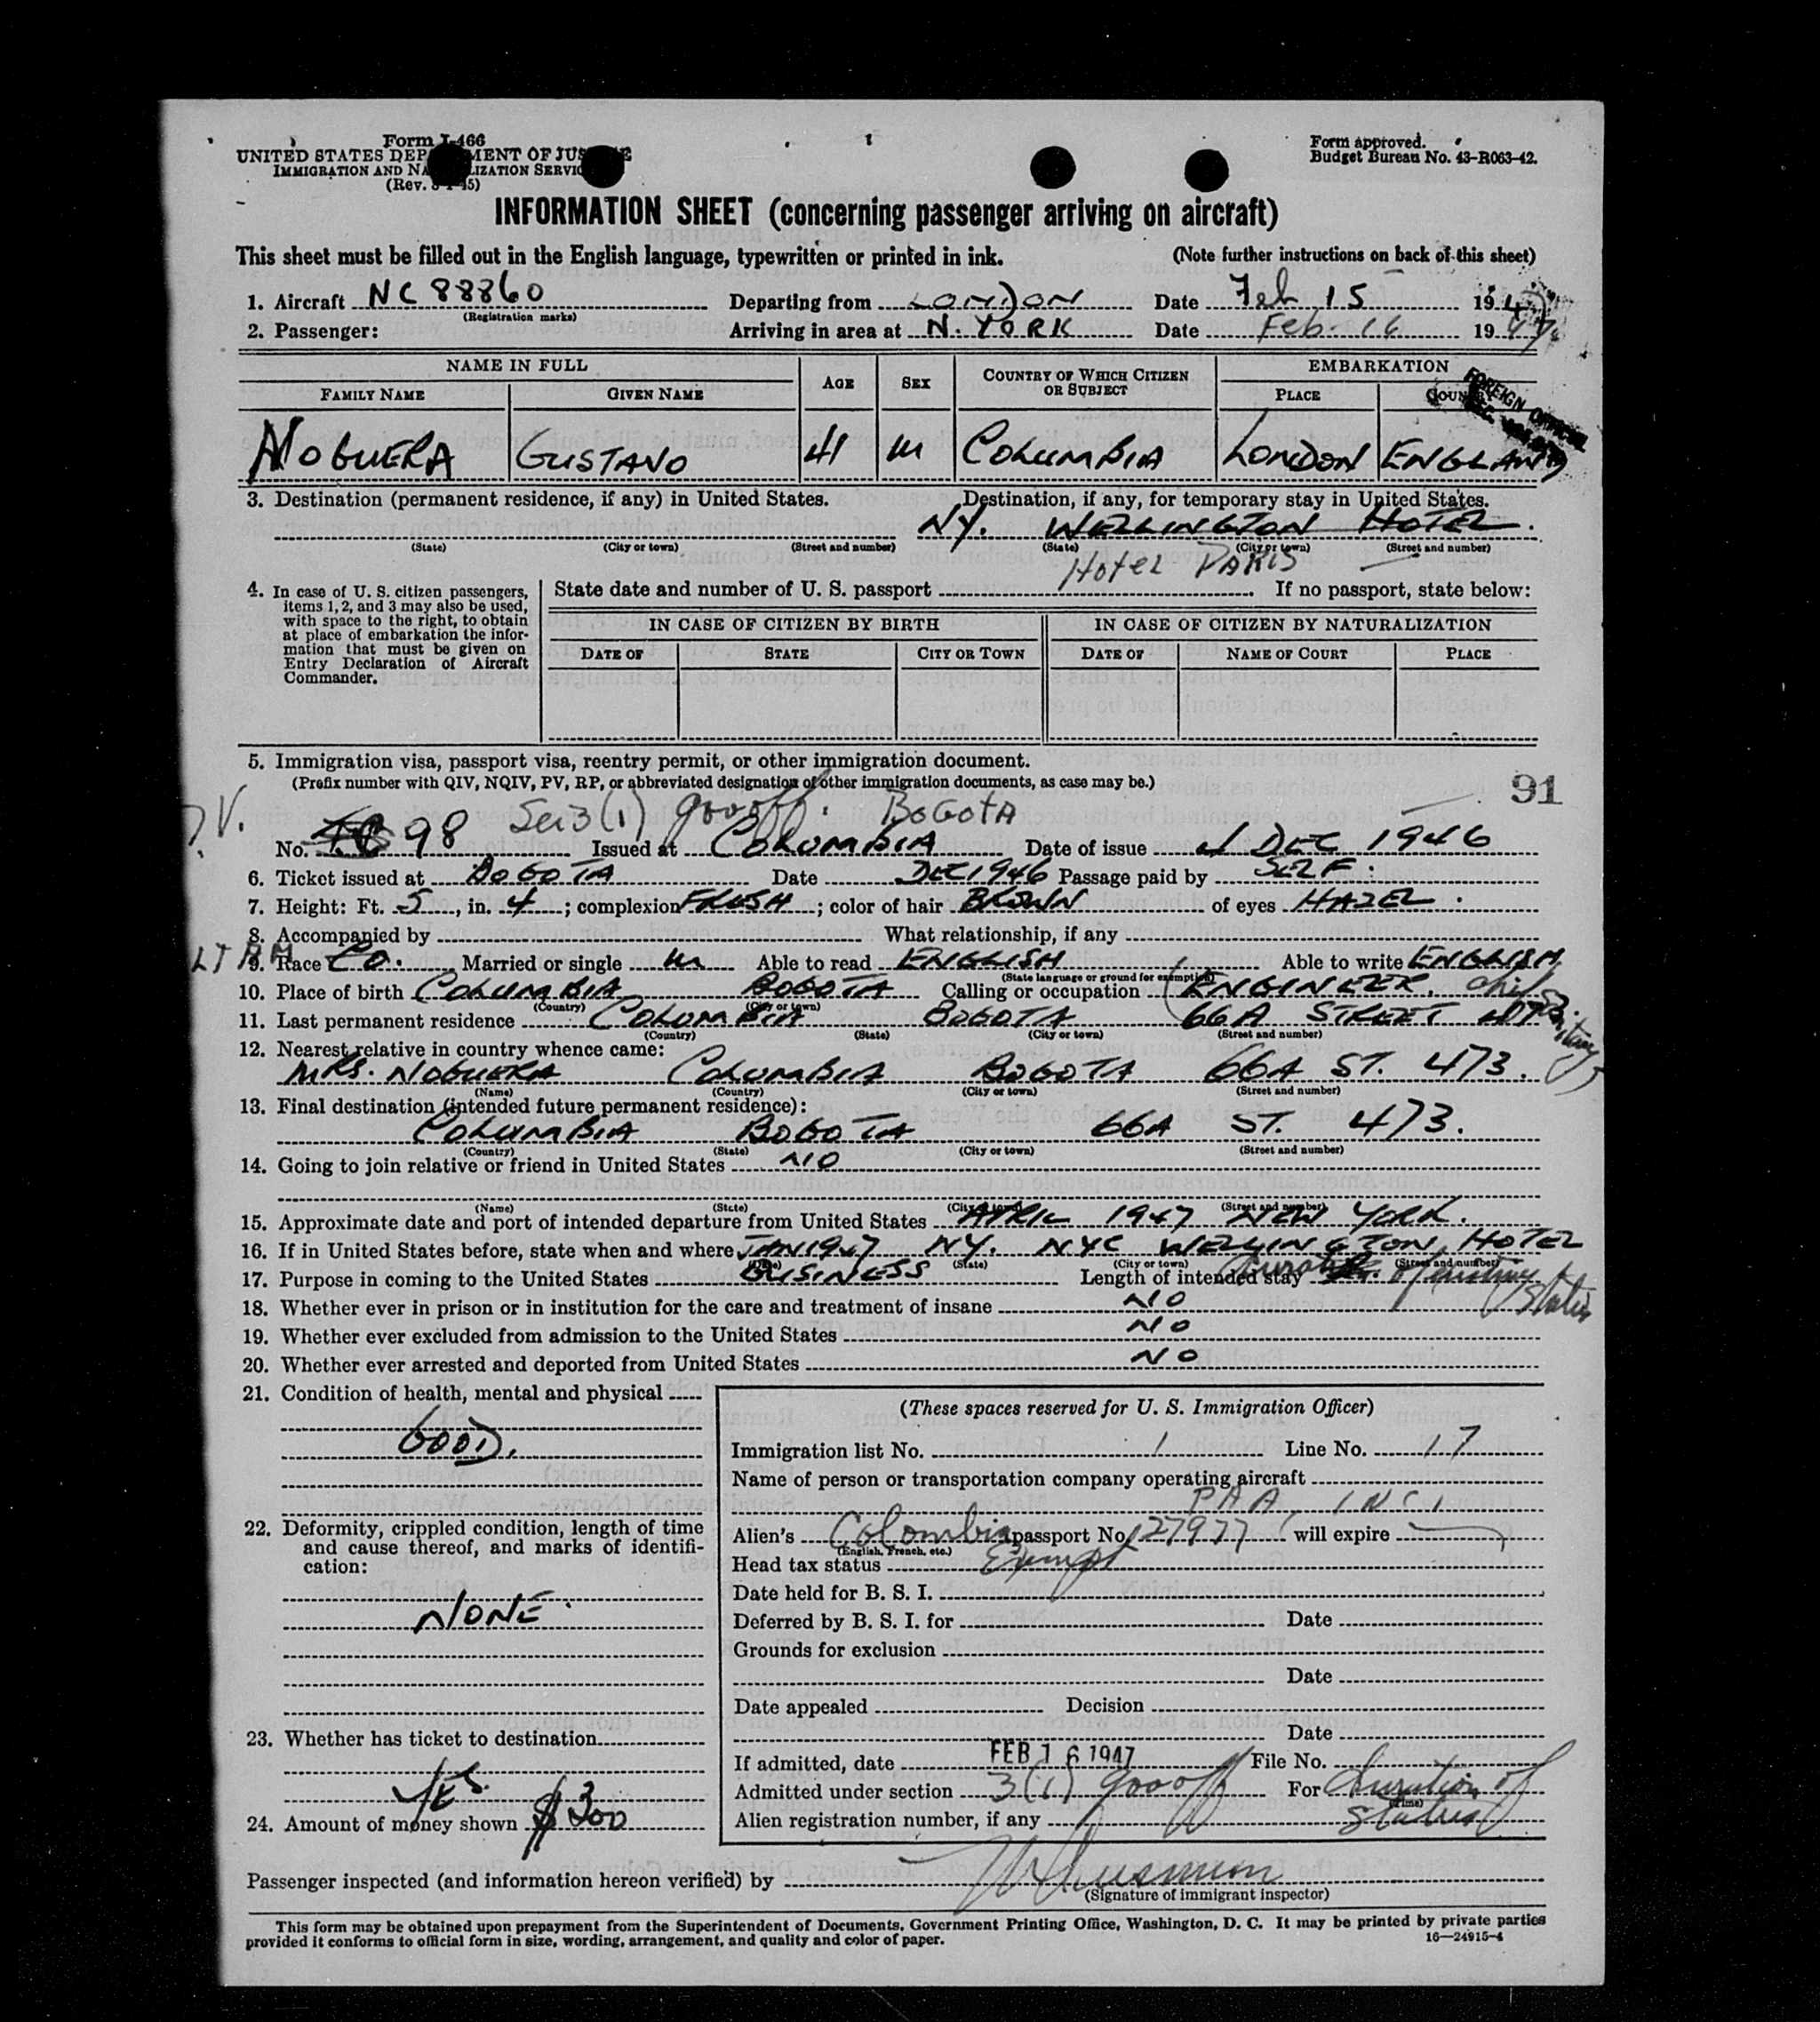 Form I-466
UNITED STATES DEPARTMENT OF JUSTICE
IMMIGRATION AND NATURALIZATION SERVICE
(Rev. 45)
Form approved.
Budget Bureau No. 43-R063-42.
INFORMATION SHEET (concerning passenger arriving on aircraft)
This sheet must be filled out in the English language, typewritten or printed in ink. (Note further instructions on back of this sheet)
1. Aircraft NC 88860 Departing from LONDON Date Feb 15 1947
(Registration marks)
2. Passenger: Arriving in area at N. YORK Date Feb. 16 1947
NAME IN FULL AGE SEX COUNTRY OF WHICH CITIZEN OR SUBJECT EMBARKATION
FAMILY NAME GIVEN NAME PLACE COUNTRY
FOREIGN OFFICIAL
NOGUERA GUSTAVO 41 M COLUMBIA LONDON ENGLAND
3. Destination (permanent residence, if any) in United States. Destination, if any, for temporary stay in United States.
NY. WELLINGTON HOTEL.
(State) (City or town) (Street and number) (State) (City or town) (Street and number)
Hotel PARIS
4. In case of U. S. citizen passengers, items 1, 2, and 3 may also be used, with space to the right, to obtain at place of embarkation the information that must be given on Entry Declaration of Aircraft Commander.
State date and number of U. S. passport If no passport, state below:
IN CASE OF CITIZEN BY BIRTH IN CASE OF CITIZEN BY NATURALIZATION
DATE OF STATE CITY OR TOWN DATE OF NAME OF COURT PLACE
5. Immigration visa, passport visa, reentry permit, or other immigration document.
(Prefix number with QIV, NQIV, PV, RP, or abbreviated designation of other immigration documents, as case may be.)
91
Sec 3(1) gov off. BOGOTA
No. 98 Issued at COLUMBIA Date of issue DEC 1946
6. Ticket issued at BOGOTA Date DEC 1946 Passage paid by SELF.
7. Height: Ft. 5, in. 4; complexion FRESH; color of hair BROWN of eyes HAZEL.
8. Accompanied by What relationship, if any
LT AM
9. Race CO. Married or single M Able to read ENGLISH Able to write ENGLISH
(State language or ground for exemption)
10. Place of birth COLUMBIA BOGOTA Calling or occupation ENGINEER.
(Country) (City or town)
11. Last permanent residence COLUMBIA BOGOTA 66A STREET 473.
(Country) (State) (City or town) (Street and number)
12. Nearest relative in country whence came:
MRS. NOGUERA COLUMBIA BOGOTA 66A ST. 473.
(Name) (Country) (City or town) (Street and number)
13. Final destination (intended future permanent residence):
COLUMBIA BOGOTA 66A ST. 473.
(Country) (State) (City or town) (Street and number)
14. Going to join relative or friend in United States NO
(Name) (State) (City or town) (Street and number)
15. Approximate date and port of intended departure from United States APRIL 1947 NEW YORK.
16. If in United States before, state when and where JAN 1947 NY. NYC WELLINGTON HOTEL
(Date) (State) (City or town) (Street and number)
17. Purpose in coming to the United States BUSINESS Length of intended stay duration of status
18. Whether ever in prison or in institution for the care and treatment of insane NO
19. Whether ever excluded from admission to the United States NO
20. Whether ever arrested and deported from United States NO
21. Condition of health, mental and physical
GOOD.
22. Deformity, crippled condition, length of time and cause thereof, and marks of identification:
NONE.
23. Whether has ticket to destination
YES.
24. Amount of money shown $300
(These spaces reserved for U. S. Immigration Officer)
Immigration list No. 1 Line No. 17
Name of person or transportation company operating aircraft
PAA, INC.
Alien's Colombia passport No. 27977 will expire
(English, French, etc.)
Head tax status Exempt
Date held for B. S. I.
Deferred by B. S. I. for Date
Grounds for exclusion
Date
Date appealed Decision
Date
If admitted, date FEB 16 1947 File No.
Admitted under section 3(1) gov off For duration of
(Time)
Alien registration number, if any status
Passenger inspected (and information hereon verified) by
(Signature of immigrant inspector)
This form may be obtained upon prepayment from the Superintendent of Documents, Government Printing Office, Washington, D. C. It may be printed by private parties
provided it conforms to official form in size, wording, arrangement, and quality and color of paper. 16—24915-4